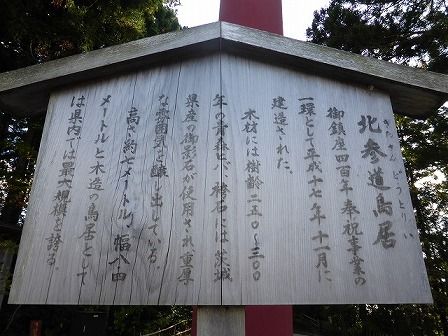 北参道鳥居
きたさんどうとりい
御鎮座四百年奉祝事業の
一環として平成十七年十一月に
建造された。
木材には樹齢二五〇〜三〇〇
年の青森ヒバ、袴石には茨城
県産の御影石が使用され重厚
な雰囲気を醸し出している。
高さ約七メートル、幅八・四
メートルと木造の鳥居として
は県内では最大規模を誇る